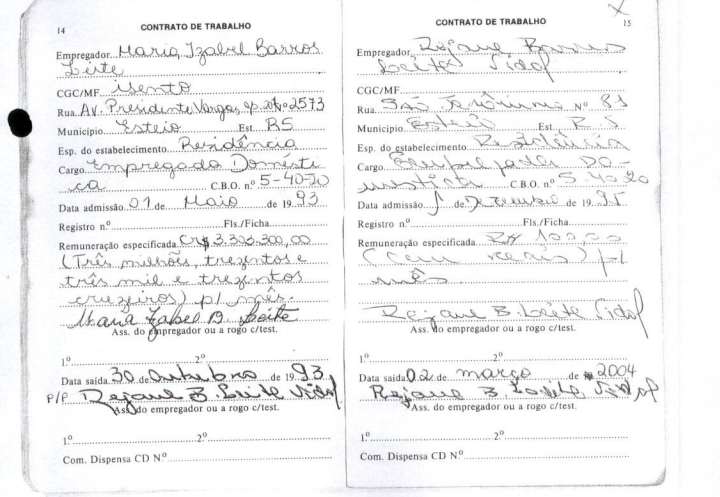 14 CONTRATO DE TRABALHO
Empregador Maria Izabel Barros
Leite
CGC/MF isento
Rua Av. Presidente Vargas, ap. Nº 2573
Município Esteio Est. RS
Esp. do estabelecimento Residência
Cargo Empregada Domésti
ca C.B.O. nº 5-40-20
Data admissão 01 de Maio de 1993
Registro nº Fls./Ficha
Remuneração especificada Cr$ 3.303.300,00
(Três milhões, trezentos e
três mil e trezentos
cruzeiros) p/ mês.
Maria Izabel B. Leite
Ass. do empregador ou a rogo c/test.
1º 2º
Data saída 30 de outubro de 1993
P/P Rejane B. Leite Vidal
Ass. do empregador ou a rogo c/test.
1º 2º
Com. Dispensa CD N.º
CONTRATO DE TRABALHO 15
Empregador Rejane Barros
Leite Vidal
CGC/MF
Rua São Jerônimo Nº 81
Município Esteio Est. R S
Esp. do estabelecimento Residência
Cargo Empregada Do-
méstica C.B.O. nº 5 40 20
Data admissão 1 de Dezembro de 1995
Registro nº Fls./Ficha
Remuneração especificada R$ 100,00
(cem reais) p/
mês
Rejane B. Leite Vidal
Ass. do empregador ou a rogo c/test.
1º 2º
Data saída 02 de março de 2004
Rejane B. Leite Vidal
Ass. do empregador ou a rogo c/test.
1º 2º
Com. Dispensa CD N.º